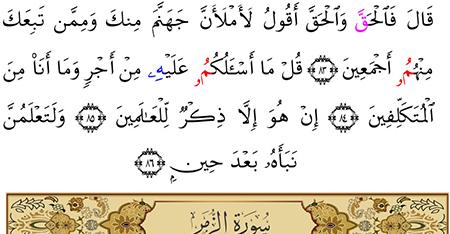 قَالَ فَالْحَقَّ وَالْحَقَّ أَقُولُ لَأَمْلَأَنَّ جَهَنَّمَ مِنكَ وَمِمَّن تَبِعَكَ
مِنْهُمُۥ أَجْمَعِينَ ٨٣ قُلْ مَا أَسْـَٔلُكُمُۥ عَلَيْهِۦ مِنْ أَجْرٍ وَمَا أَنَا۠ مِنَ
الْمُتَكَلِّفِينَ ٨٤ إِنْ هُوَ إِلَّا ذِكْرٌ لِّلْعَالَمِينَ ٨٥ وَلَتَعْلَمُنَّ
نَبَأَهُۥ بَعْدَ حِينٍۭ ٨٦
سُورَةُ الزُّمَرِ